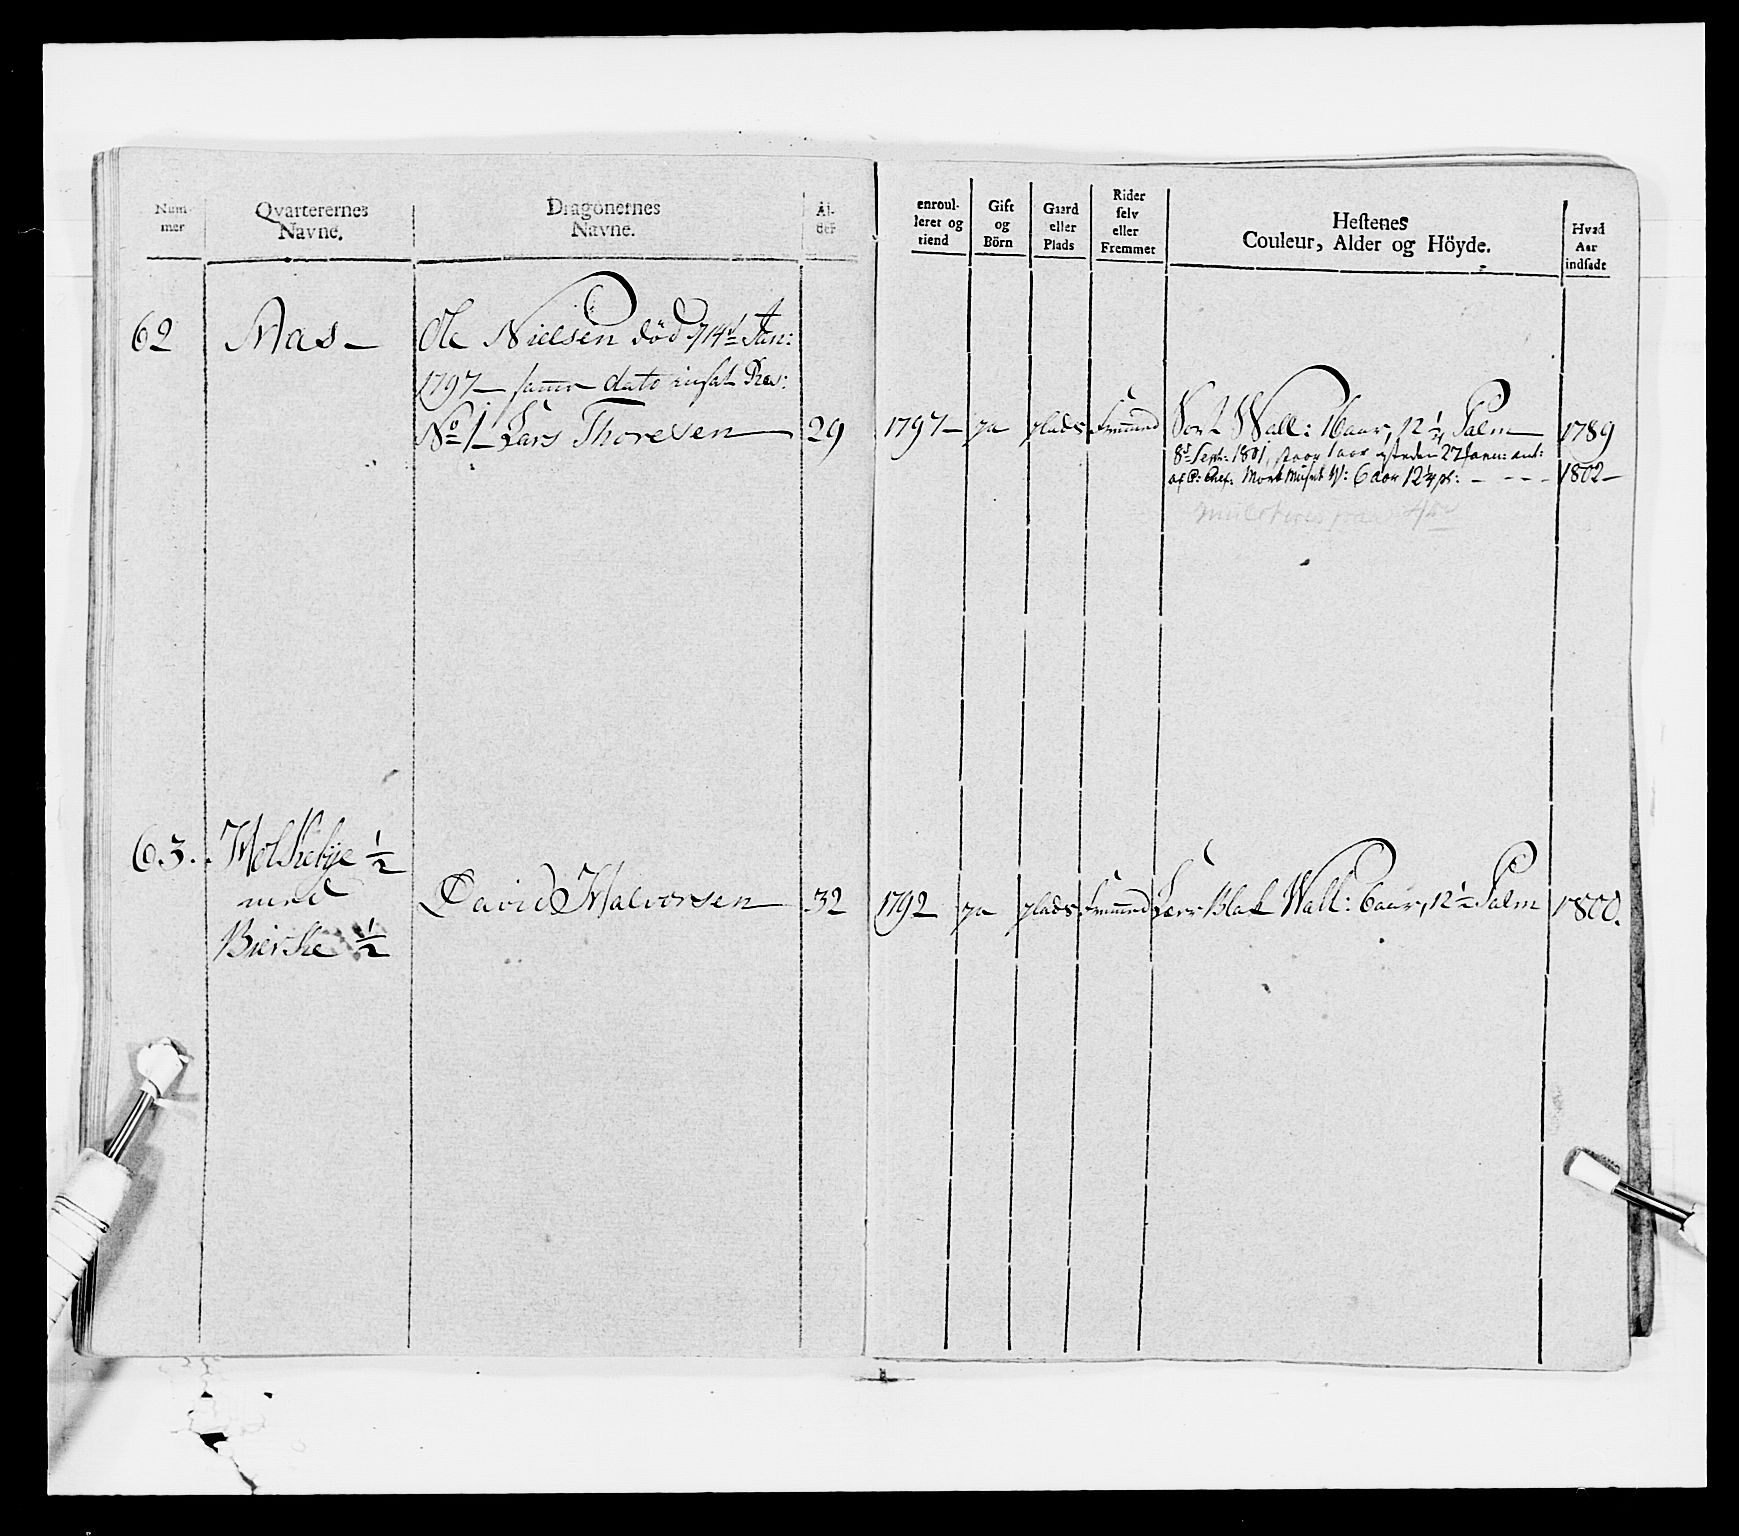 Num-
mer
Qvarterernes
Navne.
Dragonernes
Navne.
Al-
der
enroul-
leret og
tiend
Gift
og
Börn
Gaard
eller
Plads
Rider
selv
eller
Fremmet
Hestenes
Couleur, Alder og Höyde.
Hvad
Aar
indsadt
62 Aas
Ole Nielsen död 14de Jan:
1797 samme dato insat Res:
No 1 Lars Thoresen 29 1797 ja plads Fremmed Sort Wall: 16 aar, 12 1/4 Palm 1789
8de Sept: 1801, 27 Janu:
af C: Chef: W: 6 aar 12 1/4 pl: 1802
63.
1/2
med
David Halvorsen 32 1792 ja plads Fremmed Blak Wall: 6 aar, 12 1/2 Palm 1800.
Bierke 1/2